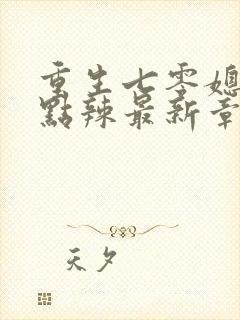 重生七零媳
點辣最新章
天夕